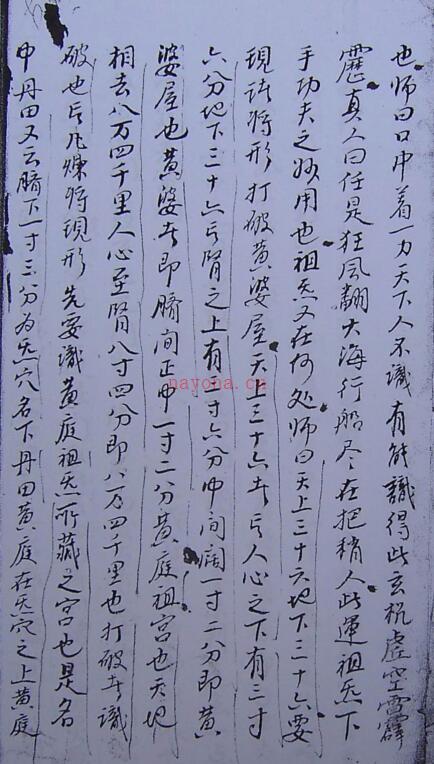 也师曰口中着一力天下人不識有能識得此玄机虚空霹
靂真人曰任是狂风翻大海行船尽在把稍人此運祖炁下
手功夫之妙用也祖炁又在何处师曰天上三十六地下三十六要
現诸将形打破黄婆屋天上三十六者言人心之下有三寸
六分地下三十六言腎之上有一寸六分中间阔一寸二分即黄
婆屋也黄婆者即臍间正中一寸二分黄庭祖宫也天地
相去八万四千里人心至腎八寸四分即八万四千里也打破者識
破也言凡煉将現形先要識黄庭祖炁所藏之宫也是名
中丹田又云臍下一寸三分为炁穴名下丹田黄庭在炁穴之上黄庭
nayona.cn